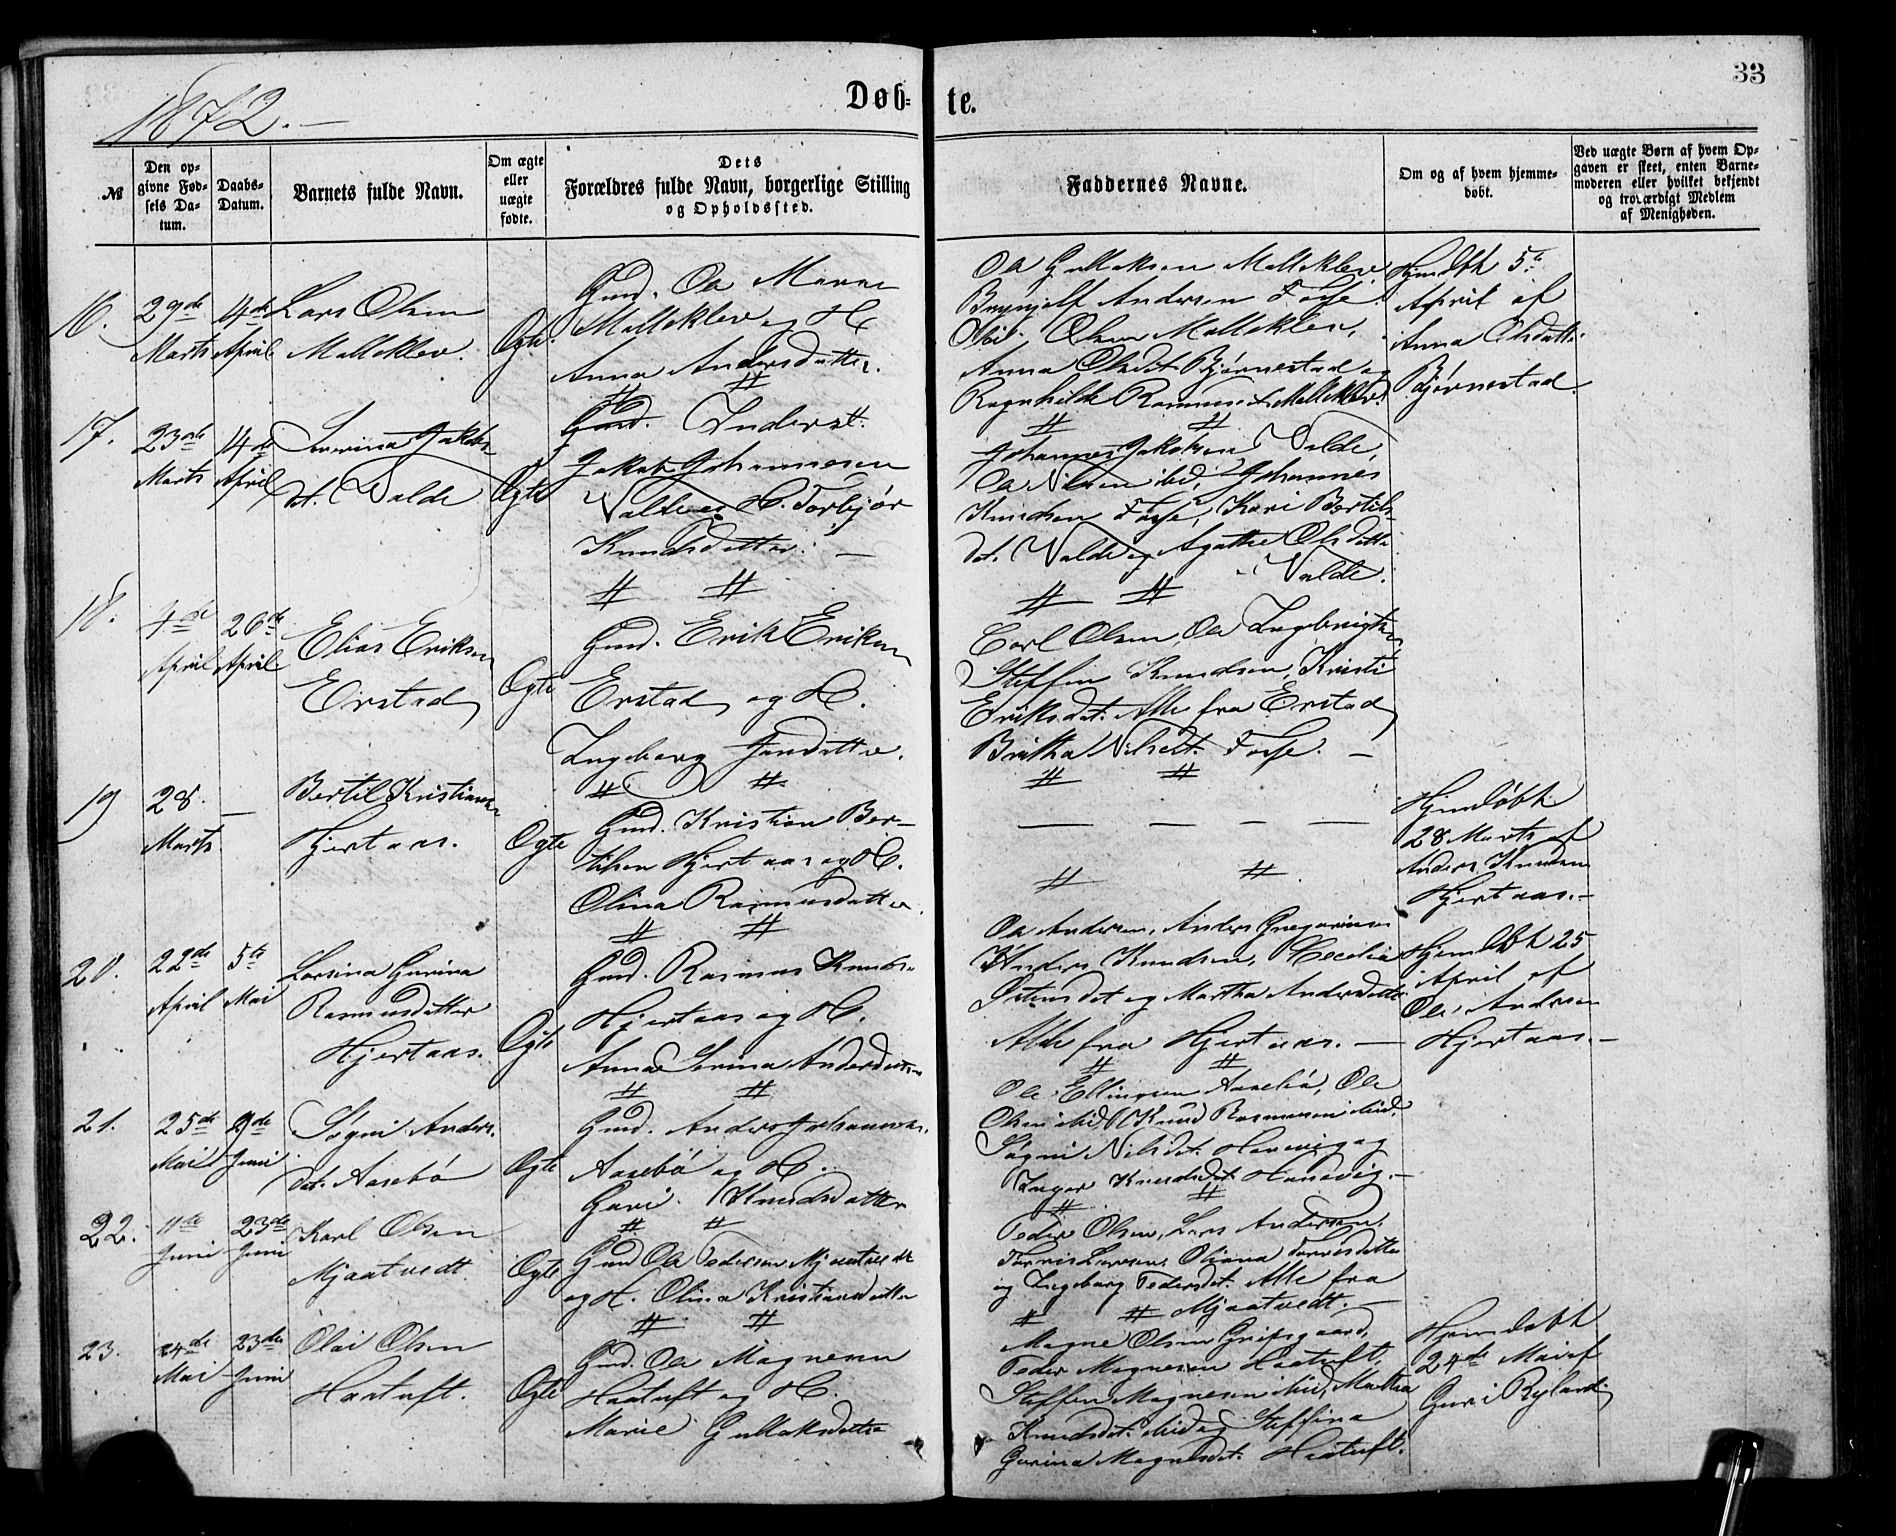 33
1872.
Døb-
te.
№
Den op-
givne Fød-
sels Da-
tum.
Daabs-
Datum.
Barnets fulde Navn.
Om ægte
eller
uægte
fødte.
Dets
Forældres fulde Navn, borgerlige Stilling
og Opholdssted.
Faddernes Navne.
Om og af hvem hjemme-
døbt.
Ved uægte Børn af hvem Op-
gaven er skeet, enten Barne-
moderen eller hvilket bekjendt
og troværdigt Medlem
af Menigheden.
16.
29de
Marts
4de
April
Lars Olsen
Molleklev.
Ægte
Gmd. Ole
Molleklev og H.
Anna Andersdatter.
Ole Gullaksen Molleklev,
Brynjolf Andersen Fosse
Olsen Molleklev,
Anna Olsdt. Bjørnestad og
Ragnhilde Rasmusdt. Molleklev.
Hjemdbt 5te
April af
Anna Olsdatter
Bjørnestad.
17.
23de
Marts
4de
April
Severina Jakobs-
dt. Valde
Ægte
Gmd. Inderst.
Jakob Johannesen
Valde og H. Torbjør
Knudsdatter. —
Johannes Jakobsen Valde,
Ole Nilsen ibd, Johannes
Knudsen Fosse, Kari Bertils-
dt. Valde og Agathe Olsdatter
Valde.
18.
4de
April
26de
April
Elias Eriksen
Eirstad
Ægte
Gmd. Erik Eriksen
Eirstad og H.
Ingeborg Jonsdatter.
Carl Olsen, Ole Ingebrigtsen,
Steffen Knudsen, Kristi
Eriksdt. Alle fra Eirstad
Britha Nilsdt. Fosse. —
19
28.
Marts
—
Bertil Kristiansen
Hjertaas.
Ægte
Gmd. Kristian Ber-
tilsen Hjertaas og H.
Olina Rasmusdatter.
— — — — —
Hjemdøbt
28 Marts af
Anders Knudsen
Hjertaas. —
20.
22de
April
5te
Mai
Larsina Gurina
Rasmusdatter
Hjertaas.
Ægte
Gmd. Rasmus Knuds-
Hjertaas og H.
Anna Serina Andersdatter
Ole Andersen, Anders Gregoriusen
Anders Knudsen, Cecelia
Østensdt og Martha Andersdatter
Alle fra Hjertaas. —
Hjemdbt 25
April af
Ole Andersen
Hjertaas. —
21.
25de
Mai
9de
Juni
Søgni Anders-
dt. Aasebø
Ægte
Gmd. Anders Johannesen
Aasebø og H.
Guri Knudsdatter
Ole Ellingsen Aasebø, Ole
Olsen ibid, Knud Rasmusen ibid.
Søgni Nilsdt. Hanevig og
Inger Knudsdt. Hanevig. —
22.
11te
Juni
23de
Juni
Karl Olsen
Mjaatvedt
Ægte
Gmd Ole Pedersen Mjaatvedt
og H. Olina Kristiansdatter
Peder Olsen, Lars Andersen,
Torris Larsen, Oliana Torrisdatter
og Ingeborg Pedersdt. Alle fra
Mjaatvedt. —
23.
24de
Mai
23de
Juni
Olai Olsen
Haatuft.
Ægte
Gmd. Ole Magnesen
Haatuft og H.
Marie Gullaksdatter
Magne Olsen Gripsgaard,
Peder Magnesen Haatuft,
Steffen Magnesen ibid, Martha
Knudsdt. ibid og Steffina
Gurina Magnesdt. Haatuft.
Hjemdøbt
24de Mai af
Guri Ryland